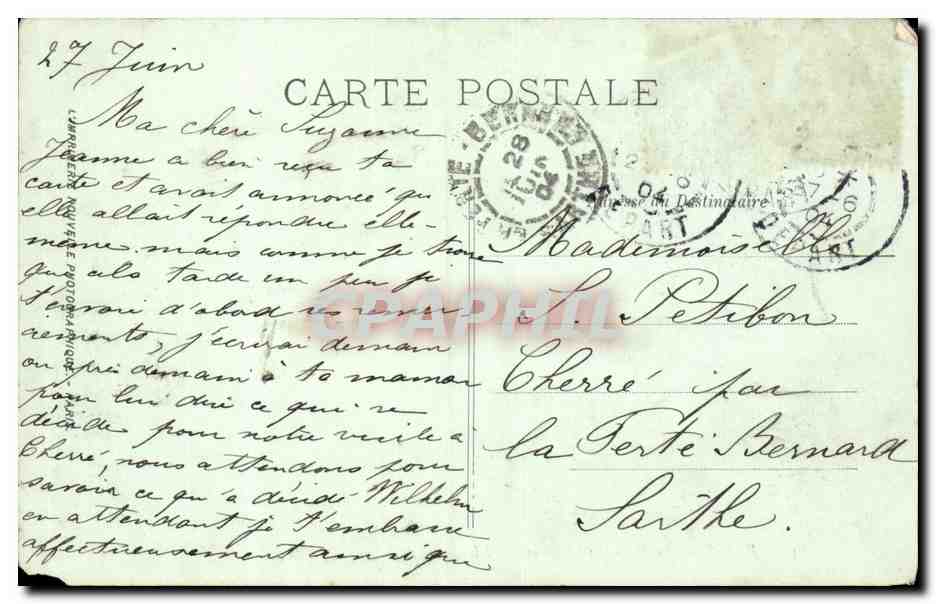 27 Juin
CARTE POSTALE
Ma chère Suzanne
Jeanne a bien reçu ta
carte et avait annoncé qu'
elle allait répondre elle-
même mais comme je trouve
que cela tarde un peu je
t'envoie d'abord ses remer-
ciements, j'écrirai demain
ou après demain à ta maman
pour lui dire ce qui se
décide pour notre visite à
Cherré, nous attendons pour
savoir ce qu'a décidé Wilhelm
en attendant je t'embrasse
affectueusement ainsi que
Adresse du Destinataire
Mademoiselle
S. Petibon
Cherré par
la Ferté Bernard
Sarthe.
28
JUIN
04
BERNARD
DEPART
04
DEPART
NOUVELLE PHOTOGRAPHIQUE - PARIS
CPAPHIL